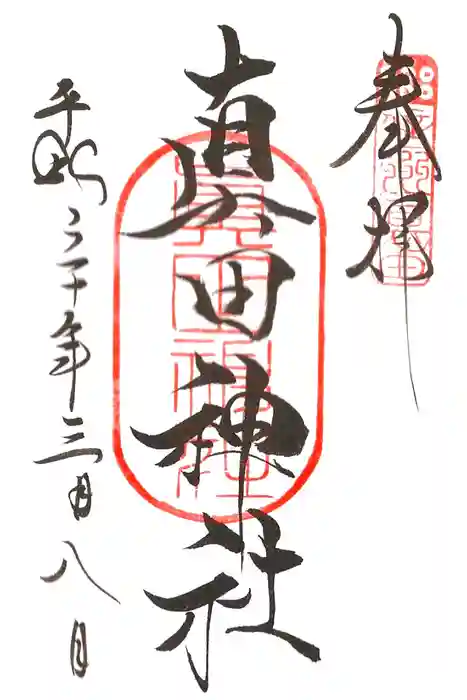 奉拝
真田神社
平成三十年三月八日